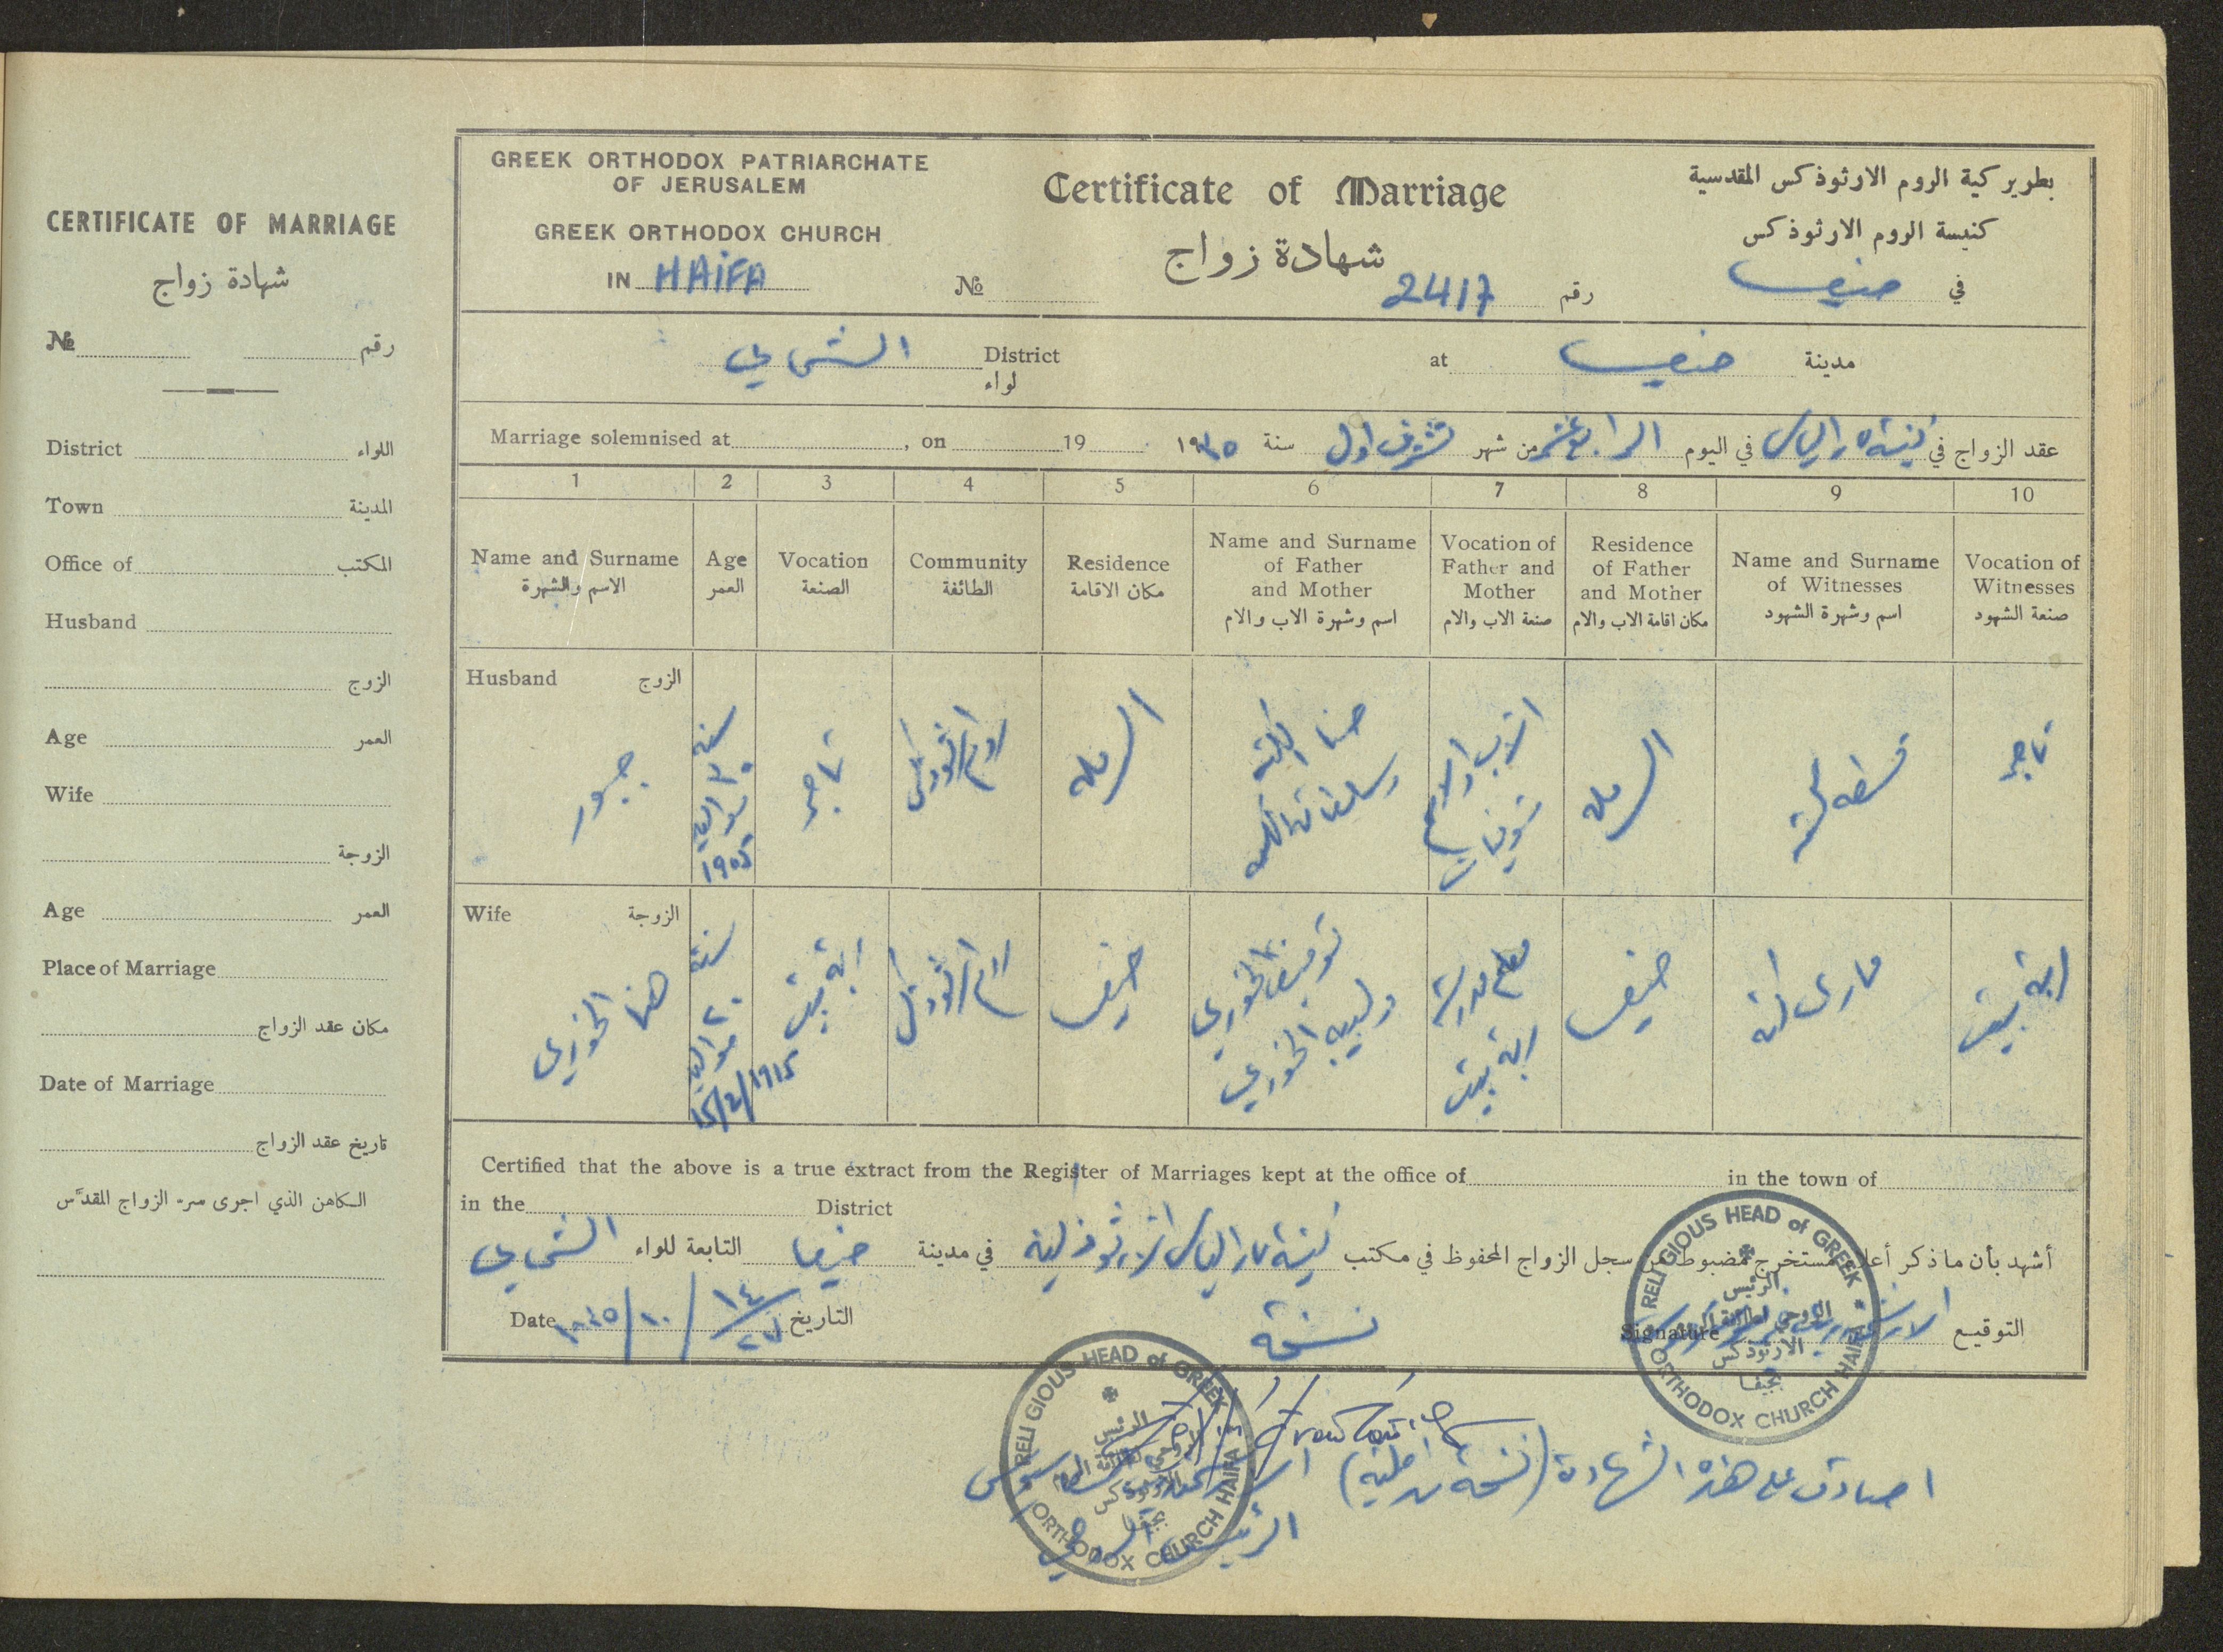 CERTIFICATE OF MARRIAGE
شهادة زواج
№ رقم
District اللواء
Town المدينة
Office of المكتب
Husband
الزوج
Age العمر
Wife
الزوجة
Age العمر
Place of Marriage
مكان عقد الزواج
Date of Marriage
تاريخ عقد الزواج
الكاهن الذي اجرى سر الزواج المقدّس
GREEK ORTHODOX PATRIARCHATE
OF JERUSALEM
GREEK ORTHODOX CHURCH
IN HAIFA
Certificate of Marriage
شهادة زواج
№ 2417 رقم
بطريركية الروم الارثوذكس المقدسية
كنيسة الروم الارثوذكس
في حيفا
الشمالي District
لواء
at حيفا مدينة
Marriage solemnised at , on 19
عقد الزواج في كنيسة مار الياس في اليوم الرابع عشر من شهر تشرين اول سنة
1 2 3 4 5 6 7 8 9 10
Name and Surname
الاسم والشهرة
Age
العمر
Vocation
الصنعة
Community
الطائفة
Residence
مكان الاقامة
Name and Surname
of Father
and Mother
اسم وشهرة الاب والام
Vocation of
Father and
Mother
صنعة الاب والام
Residence
of Father
and Mother
مكان اقامة الاب والام
Name and Surname
of Witnesses
اسم وشهرة الشهود
Vocation of
Witnesses
صنعة الشهود
Husband الزوج
جبور
سنة
٣٠
مواليد
١٩٠٥
تاجر
روم ارثوذكس
الرملة
حنا
الرملة
تاجر
Wife الزوجة
هنا الخوري
سنة
٢٠
مواليد
١٥/٤/١٩١٥
ربة بيت
روم ارثوذكس
حيفا
توفيق الخوري
ولبيبة الخوري
معلم مدرسة
ربة بيت
حيفا
ماري
ربة بيت
Certified that the above is a true extract from the Register of Marriages kept at the office of in the town of
in the District
أشهد بأن ما ذكر أعلاه مستخرج مضبوط من سجل الزواج المحفوظ في مكتب كنيسة مار الياس الارثوذكسية في مدينة حيفا التابعة للواء الشمالي
Date التاريخ
نسخة
التوقيع Signature
RELIGIOUS HEAD of GREEK
ORTHODOX CHURCH HAIFA
الرئيس
الروحي لطائفة الروم
الارثوذكس
بحيفا
اصادق على هذه الشهادة
الرئيس الروحي
RELIGIOUS HEAD of GREEK
ORTHODOX CHURCH HAIFA
الرئيس
الروحي لطائفة الروم
الارثوذكس
بحيفا